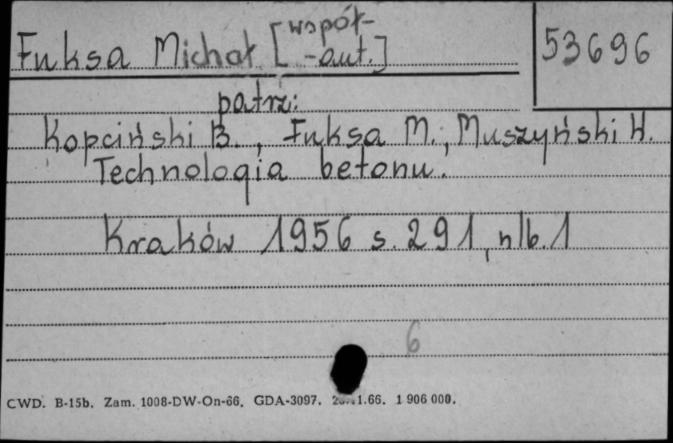 Fuksa Michał [współ-
-aut.]
53696
patrz:
Kopciński B., Fuksa M., Muszyński W.
Technologia betonu.
Kraków 1956 s. 291, nlb. 1
6
CWD. B-15b. Zam. 1008-DW-On-66. GDA-3097. 1 906 000.